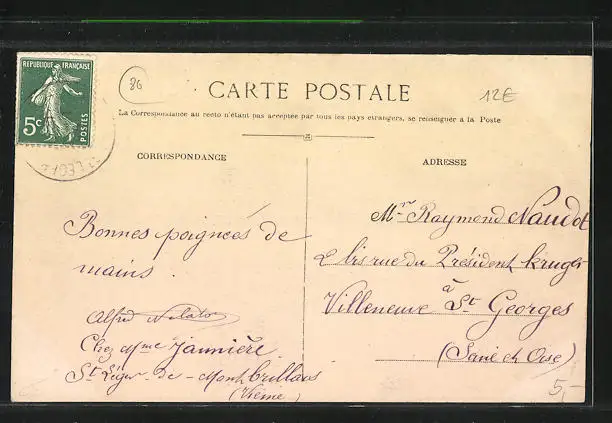 REPUBLIQUE FRANÇAISE
5c
POSTES
86
CARTE POSTALE
12E
La Correspondance au recto n'étant pas acceptée par tous les pays étrangers, se renseigner à la Poste
CORRESPONDANCE
Bonnes poignées de
mains.
Alfred
Chez Mme Jaunière
St Léger-de-Montbrillais
(Vienne)
ADRESSE
Mr Raymond Naudot
2 bis rue du Président Kruger
à
Villeneuve St Georges
(Seine et Oise)
5,-